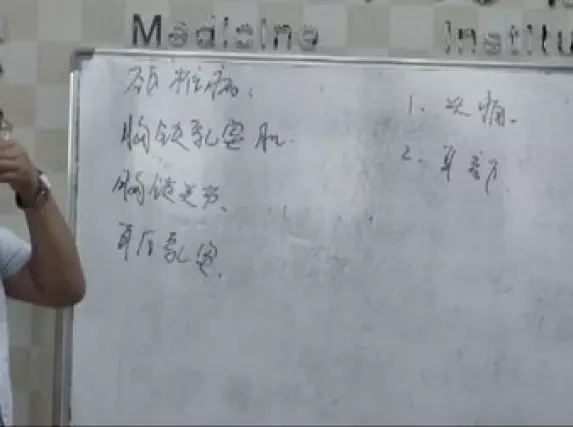 Medicine Institu
颈椎病.
胸锁乳突肌.
胸锁关节、
耳后乳突.
1. 头痛.
2. 耳